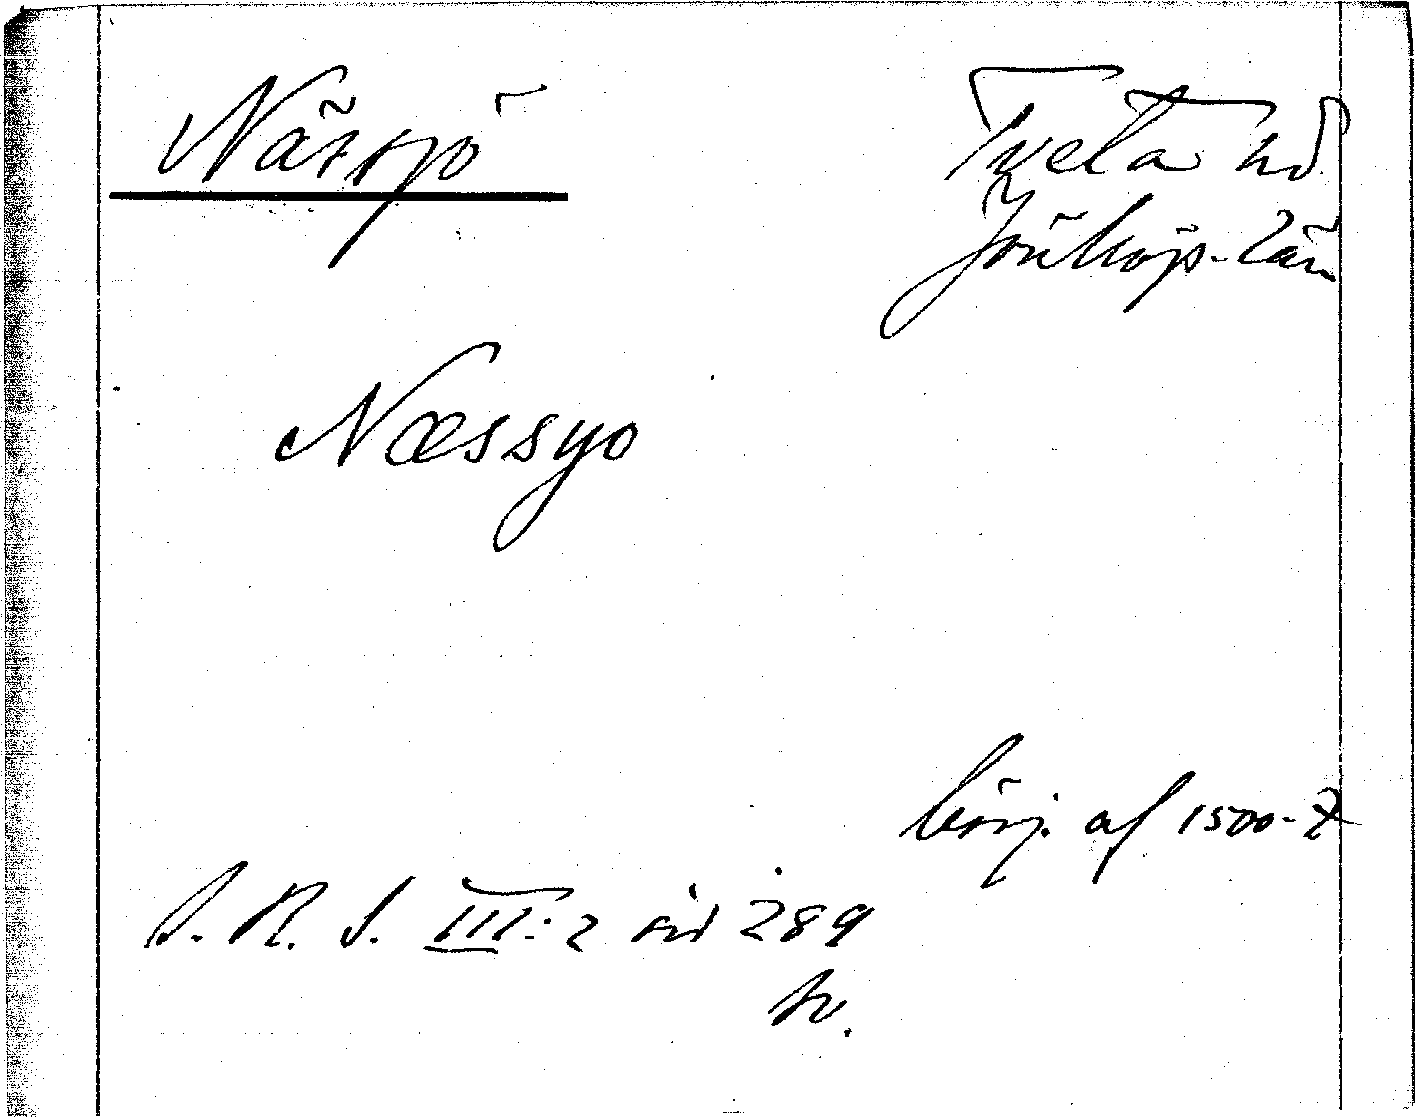 Nässjö
Tveta hd
Jönköp. län
Næssyo
börj. af 1500-t
S. R. S. III:2 sid 289
h.